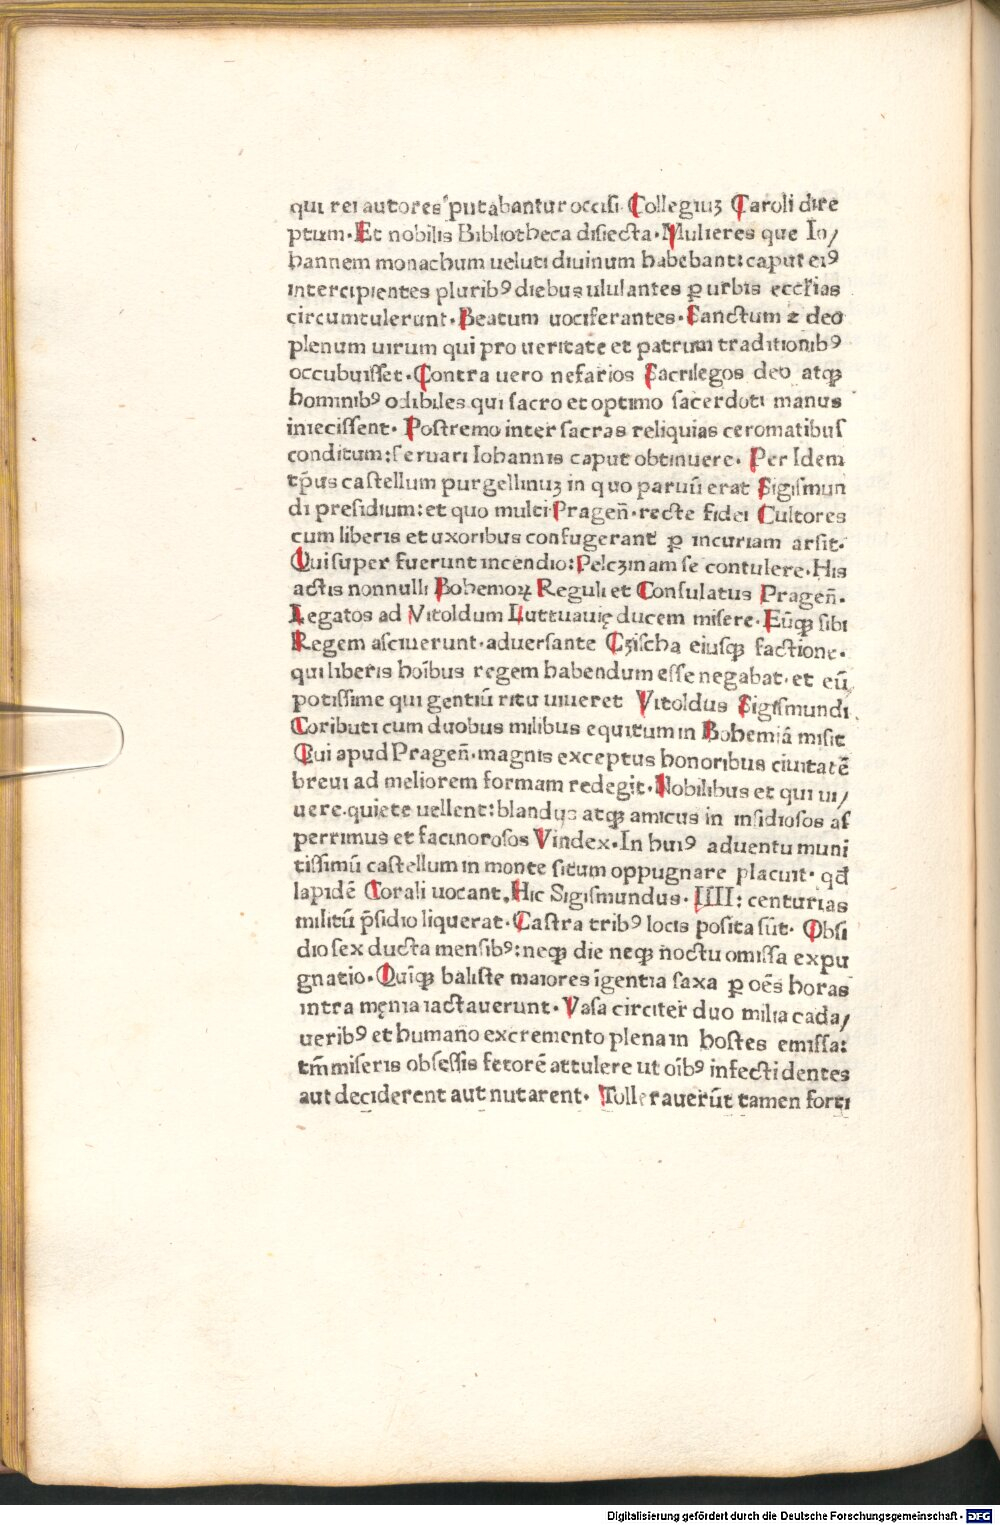 qui rei autores putabantur occisi Collegiuꝫ Caroli dire
ptum·Et nobilis Bibliotheca disiecta·Mulieres que Io/
hannem monachum ueluti diuinum habebant:caput eiꝰ
intercipientes pluribꝰ diebus ululantes ꝑ urbis eccłias
circumtulerunt·Beatum uociferantes·Sanctum ⁊ deo
plenum uirum qui pro ueritate et patrum traditionibꝰ
occubuisset·Contra uero nefarios Sacrilegos deo atqꝫ
hominibꝰ odibiles qui sacro et optimo sacerdoti manus
iniecissent· Postremo inter sacras reliquias ceromatibus
conditum:seruari Iohannis caput obtinuere· Per Idem
tp̄us castellum purgellinuꝫ in quo paruū erat Sigismun
di presidium:et quo multi Pragen̄·recte fidei Cultores
cum liberis et uxoribus confugerant ꝑ incuriam arsit·
Qui super fuerunt incendio:Pelcꝫinam se contulere·His
actis nonnulli Bohemoꝝ Reguli et Consulatus Pragen̄·
Legatos ad Vitoldum Luttuauię ducem misere·Eūqꝫ sibi
Regem asciuerunt·aduersante Cꝫischa eiusqꝫ factione·
qui liberis hoībus regem habendum esse negabat·et eū
potissime qui gentiū ritu uiueret Vitoldus Sigismundi
Coributi cum duobus milibus equitum in Bohemiā misit
Qui apud Pragen̄·magnis exceptus honoribus ciuitatē
breui ad meliorem formam redegit·Nobilibus et qui ui/
uere·quiete uellent:blandus atqꝫ amicus in insidiosos as
perrimus et facinorosos Vindex·In huiꝰ aduentu muni
tissimū castellum in monte situm oppugnare placuit· qđ
lapidē Corali uocant,Hic Sigismundus·IIII:centurias
militū p̄sidio liquerat·Castra tribꝰ locis posita sūt· Obsi
dio sex ducta mensibꝰ:neqꝫ die neqꝫ noctu omissa expu
gnatio·Quīqꝫ baliste maiores īgentia saxa ꝑ oēs horas
intra męnia iactauerunt·Vasa circiter duo milia cada/
ueribꝰ et humano excremento plena in hostes emissa:
tm̄ miseris obsessis fetorē attulere ut oībꝰ infecti dentes
aut deciderent aut nutarent· Tollerauerūt tamen forti
Digitalisierung gefördert durch die Deutsche Forschungsgemeinschaft - DFG